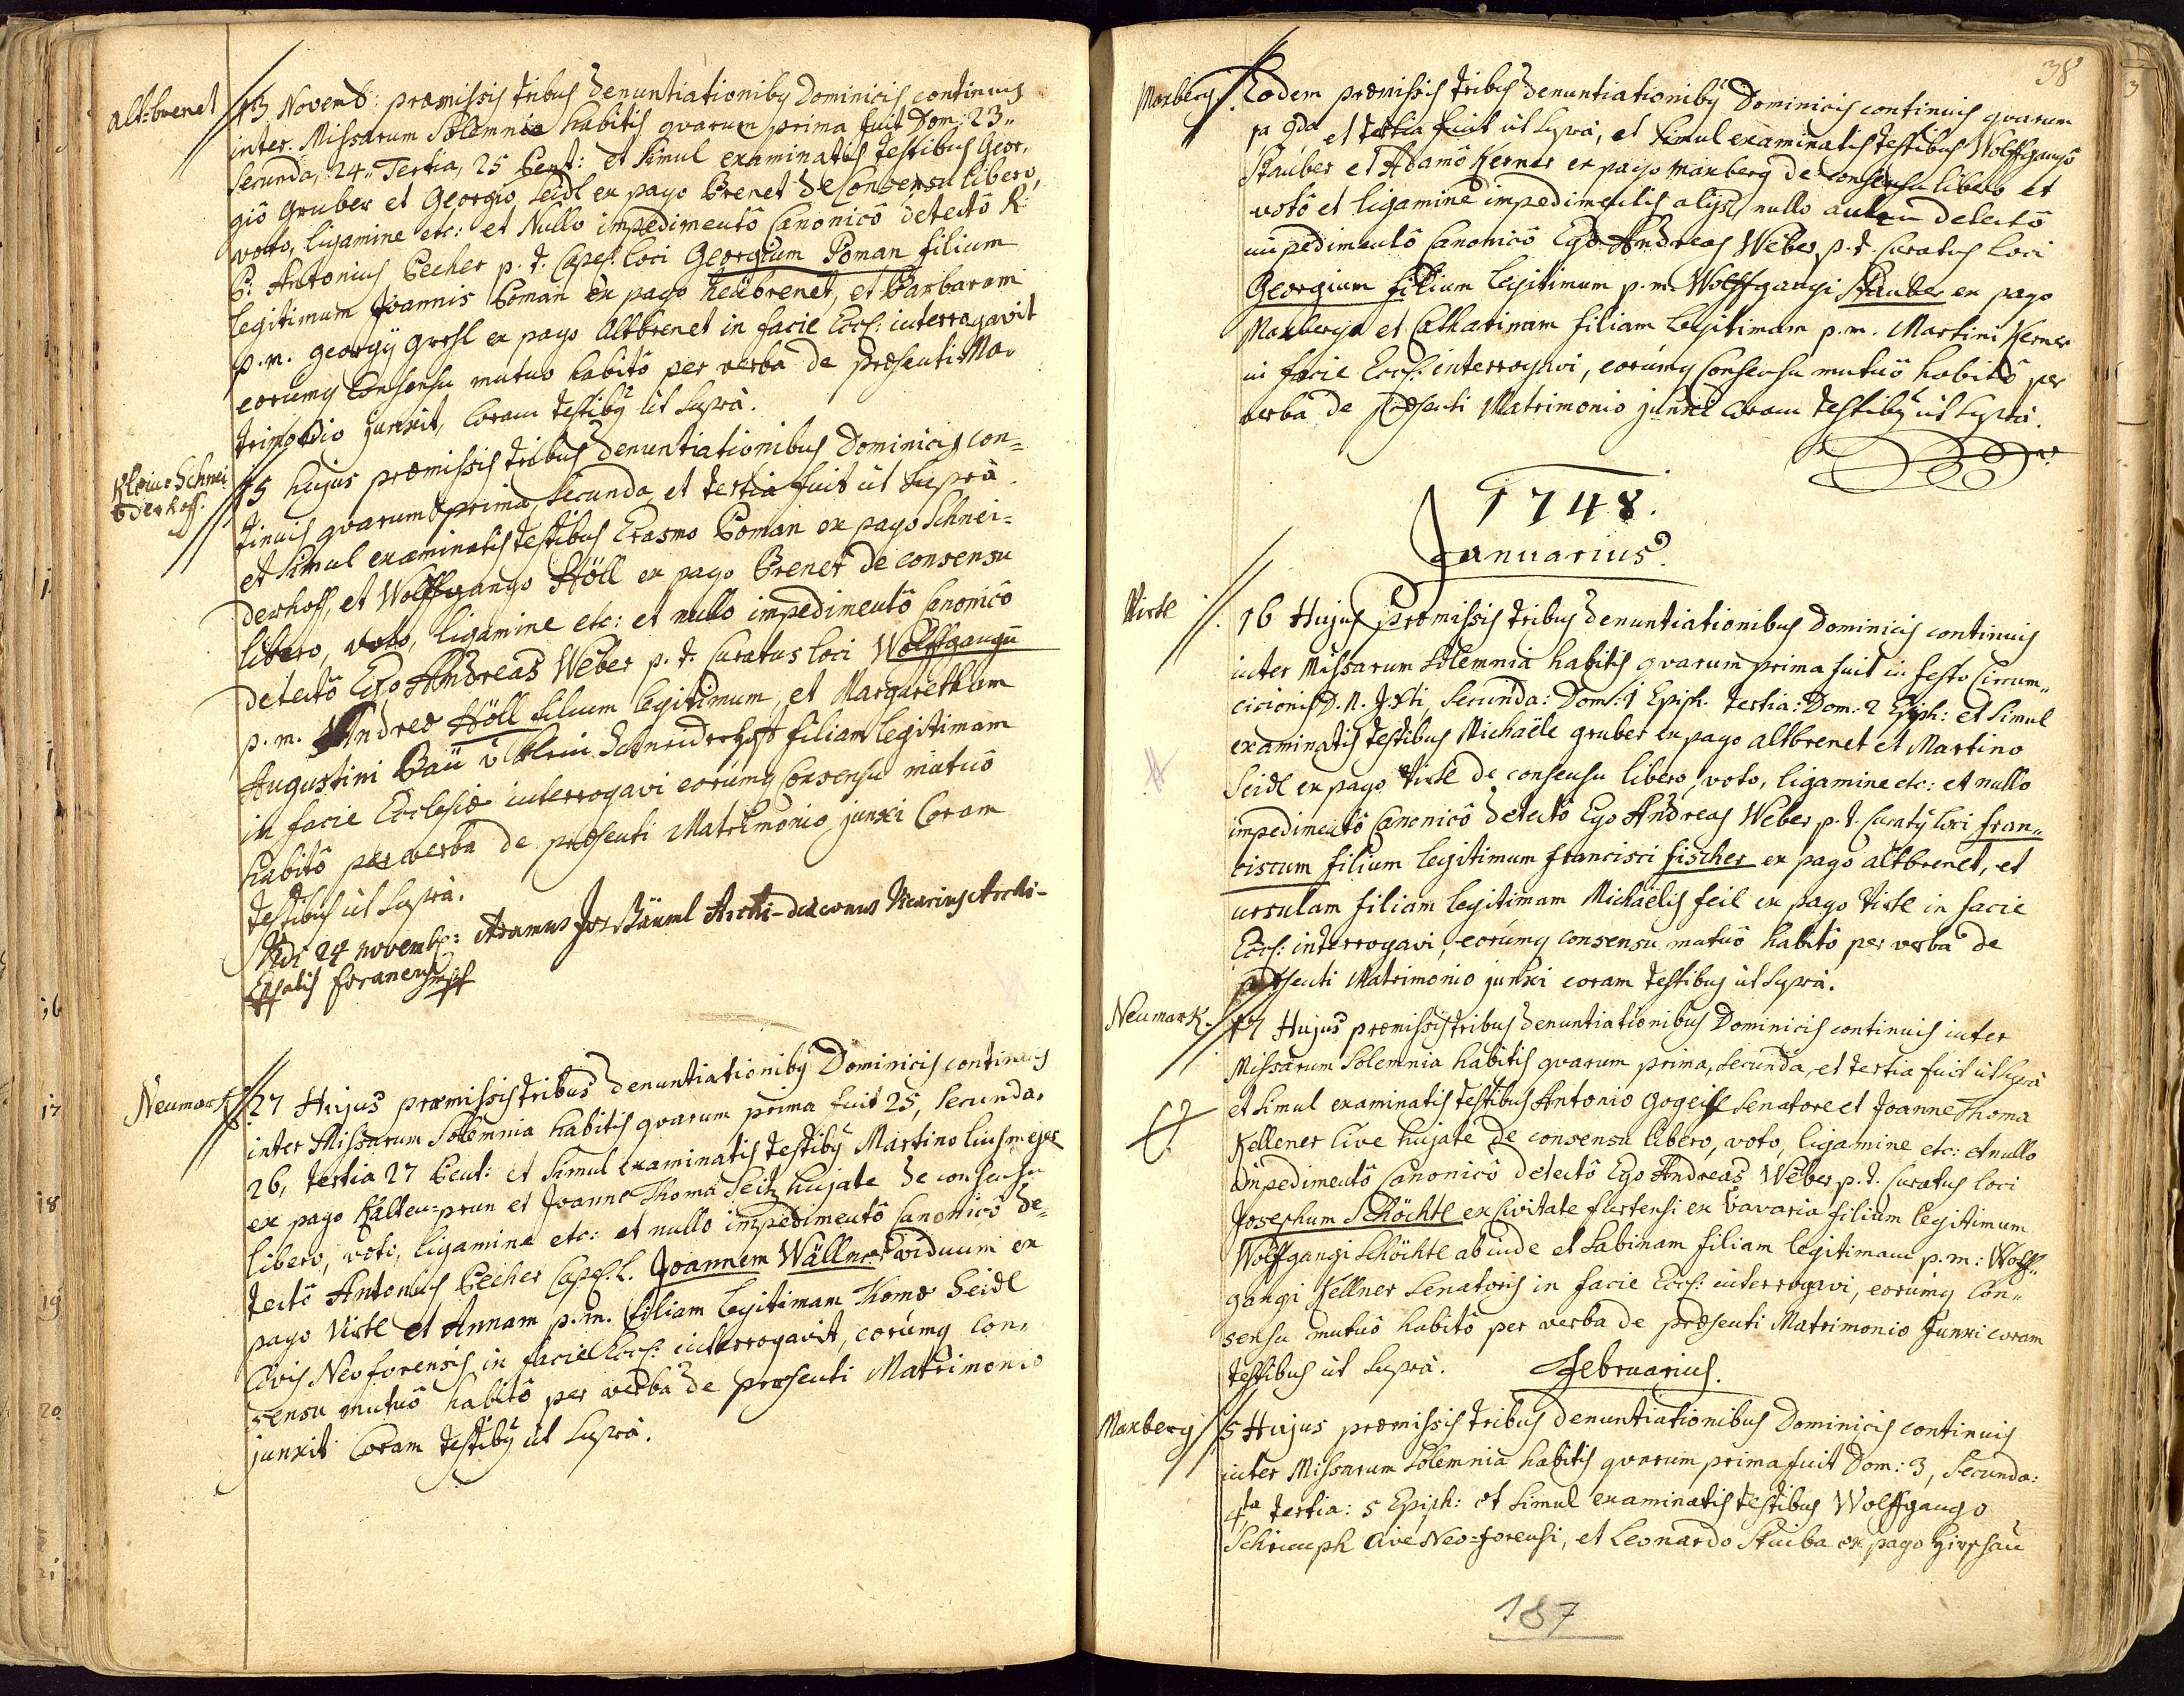 Alt-brenet
13 Novemb: præmissis tribus denuntiationibq Dominicis continuis
inter Missarum Solemnia habitis qvarum prima fuit Dom: 23"
Secunda, 24" Tertia, 25 Pent: et Simul examinatis testibus Geor,
giô Gruber et Georgiô Seidl ex pago Brenet de Consensu libero,
voto, ligamine etc: et Nullo impedimentô Canonicô detectô R:
P: Antonius Pecher p. t. Capel: loci Georgium Poman filium
legitimum Joannis Poman ex pago Neübrenet, et Barbaram
p.m. Georgÿ ex pago Altbrenet in facie Eccl: interrogavit
eorumq Consensu mutuo habitô per verba de præsenti Ma,
trimonio junxit, Coram testibq ut Suprà.
Klein-Schnei
derhoff.
15 hujus præmissis tribus denuntiationibus Dominicis con=
tinuis qvarum prima, Secunda, et tertia fuit ut Suprà.
et Simul examinatis testibus Erasmo Poman ex pago Schnei=
derhoff, et Wolffgango Höll ex pago Brenet de consensu
libero, voto, ligamine etc: et nullo impedimentô Canonicô
detectô Ego Andreas Weber p. t. Curatus loci Wolffgangū
p. m. Andreæ Höll filium legitimum, et Margaretham
Augustini Paü v Klein Schneiderhoff filiam legitimam
in facie Ecclesiæ interrogavi eorumq Consensu mutuô
habitô per verba de præsenti Matrimonio junxi Coram
testibus ut Suprà.
Vidi 24 novemb: Adamus Jos Bäuml Archi-diaconus Vicarius Archi-
Eppalis foraneus mpp
Neumark
27 Hujus præmissis tribus denuntiationibq Dominicis continuis
inter Missarum Solemnia habitis qvarum prima fuit 25, Secunda,
26, tertia 27 Pent: et Simul examinatis testibq Martino
ex pago Kalten=prun et Joanne Thoma Seitz hujate de consensu
libero, voto, ligamine etc: et nullo impedimentô Canonicô de=
tectô Antonius Pecher Capel. L. Joannem Wällner viduum ex
pago Viertl et Annam p.m. filiam legitimam Thomæ Seidl
Civis Neoforensis in facie Eccl: interrogavit, eorumq Con,
sensu mutuô habitô per verba de præsenti Matrimonio
junxit Coram testibq ut Suprà.
38
Maxberg
Eodem præmissis tribus denuntiationibq Dominicis continuis qvarum
1a 2da et tertia fuit ut Suprà, et Simul examinatis testibus Wolffgangô
Stauber et Adamô Kerner ex pago Maxberg de consensu libero et
votô et ligamine impedimentis alÿs, nullo autem detectô
impedimentô Canonicô Ego Andreas Weber p. t. Curatus loci
Georgium filium legitimum p.m. Wolffgangi Stauber ex pago
Maxberg et Catharinam filiam legitimam p.m. Martini Kerner
in facie Eccl: interrogavi, eorumq Consensu mutuô habitô per
verba de præsenti Matrimonio junxi Coram testibq ut Suprà.
1748.
Januarius.
Virtl
16 Hujus præmissis tribus denuntiationibus Dominicis continuis
inter Missarum Solemnia habitis qvarum prima fuit in festo Circum,,
cicionis D. N. J. Xti, Secunda: Dom: 1 Epiph. tertia: Dom: 2 Epiph: et Simul
examinatis testibus Michaële Gruber ex pago Altbrenet et Martino
Seidl ex pago Virtl de consensu libero, voto, ligamine etc: et nullo
impedimentô Canonicô detectô Ego Andreas Weber p. t. Curatq loci Fran,,
ciscum filium legitimum Francisci Fischer ex pago Altbrenet, et
Ursulam filiam legitimam Michaëlis Feil ex pago Virtl in facie
Eccl: interrogavi, eorumq consensu mutuô habitô per verba de
præsenti Matrimonio junxi coram testibus ut Suprà.
Neumark.
17 Hujus præmissis tribus denuntiationibus Dominicis continuis inter
Missarum Solemnia habitis qvarum prima, Secunda, et tertia fuit ut Suprà
et Simul examinatis testibus Antonio Gogeisl Senatore et Joanne Thoma
Kellener Cive hujate de consensu libero, voto, ligamine etc: et nullo
impedimentô Canonicô detectô Ego Andreas Weber p. t. Curatus loci
Josephum Schöchtl ex Civitate furtensi ex Bavaria filium legitimum
Wolffgangi Schöchtl abinde et Sabinam filiam legitimam p.m: Wolff,,
gangi Kellner Senatoris in facie Eccl: interrogavi, eorumq Con,,
sensu mutuô habitô per verba de præsenti Matrimonio Junxi coram
testibus ut Suprà.
Februarius.
Maxberg
5 Hujus præmissis tribus denuntiationibus Dominicis continuis
inter Missarum Solemnia habitis qvarum prima fuit Dom: 3, Secunda:
4ta tertia: 5 Epiph: et Simul examinatis testibus Wolffgango
Schrumph Cive Neo=forensi, et Leonardo Stuiba ex pago Hirschau
187